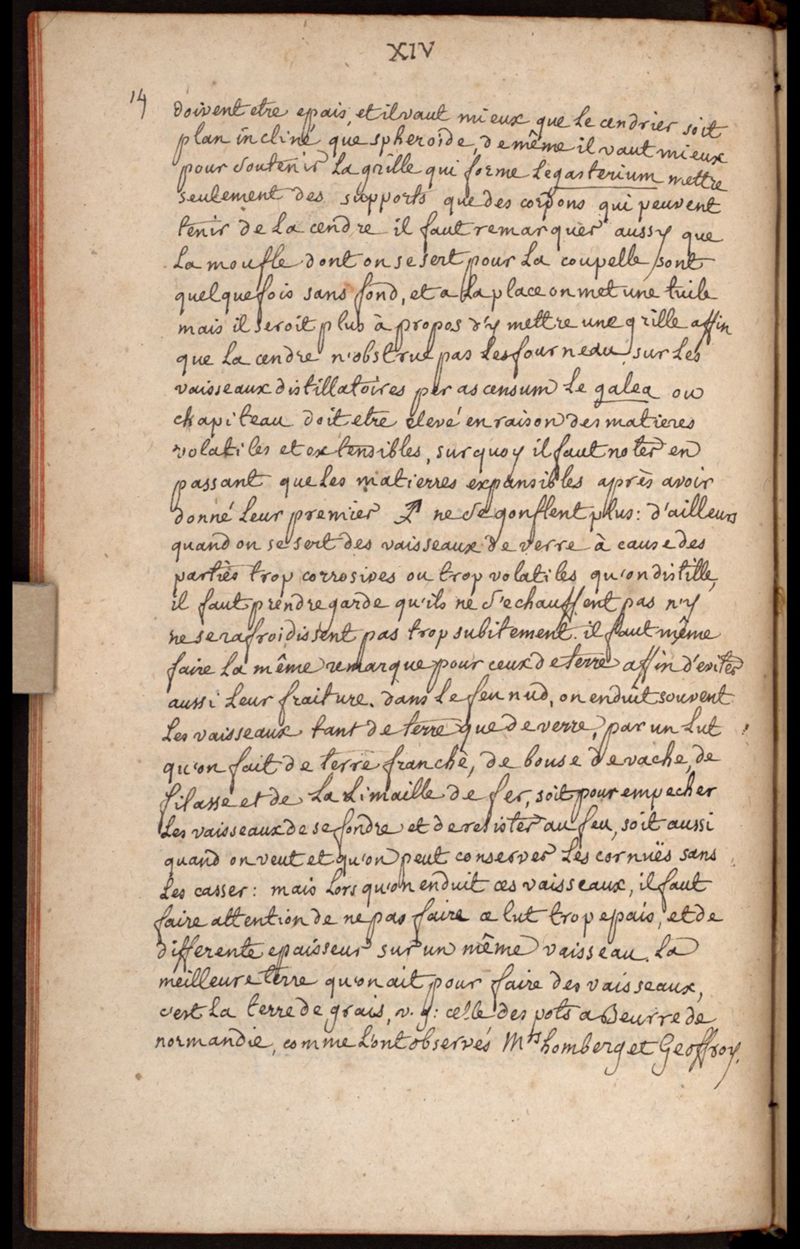 XIV
14
doivent etre epais, et il vaut mieux que le cendrier soit
plan incliné que spheroïde, de même il vaut mieux
pour soutenir la grille qui forme le gasterium mettre
seulement des supports que des cordons qui peuvent
tenir de la cendre il faut remarquer aussy que
la moufle dont on se sert pour la coupelle sont
quelquefois sans fond, et a la place on met une tuile
mais il seroit plus à propos d'y mettre une grille affin
que la cendre n'obstrue pas les fourneau, sur les
vaisseaux distillatoires per ascensum le galea ou
chapiteau doit etre elevé en raison des matieres
volatiles et extensibles, sur quoy il faut noter en
passant que les matierres expansibles après avoir
donné leur premier ne se gonflent plus: d'ailleurs
quand on se sert des vaisseaux de verre à cause des
parties trop corrosives ou trop volatiles qu'on distille,
il faut prendre garde qu'ils ne s'echauffent pas n'y
ne se rafroidissent pas trop subitement. il faut même
faire la même remarque pour ceux de terre affin d'eviter
aussi leur fraiture. dans le feu nud, on enduit souvent
les vaisseaux tant de terre que de verre, par un lut
qu'on fait de terre franche, de bouse de vache, de
filasse et de la limaille de fer, soit pour empecher
les vaisseaux de se fondre et de resister au feu, soit aussi
quand on veut et qu'on peut conserver les cornuës sans
les casser: mais lors qu'on enduit ces vaisseaux, il faut
faire attention de ne pas faire ce lut trop epais, et de
differente epaisseur sur un même vaisseau. la
meilleure terre qu'on ait pour faire des vaisseaux,
c'est la terre de grais, v. g: celle des pots a Beurre de
normandie, comme l'ont observés Mrs homberg et Geoffroy.